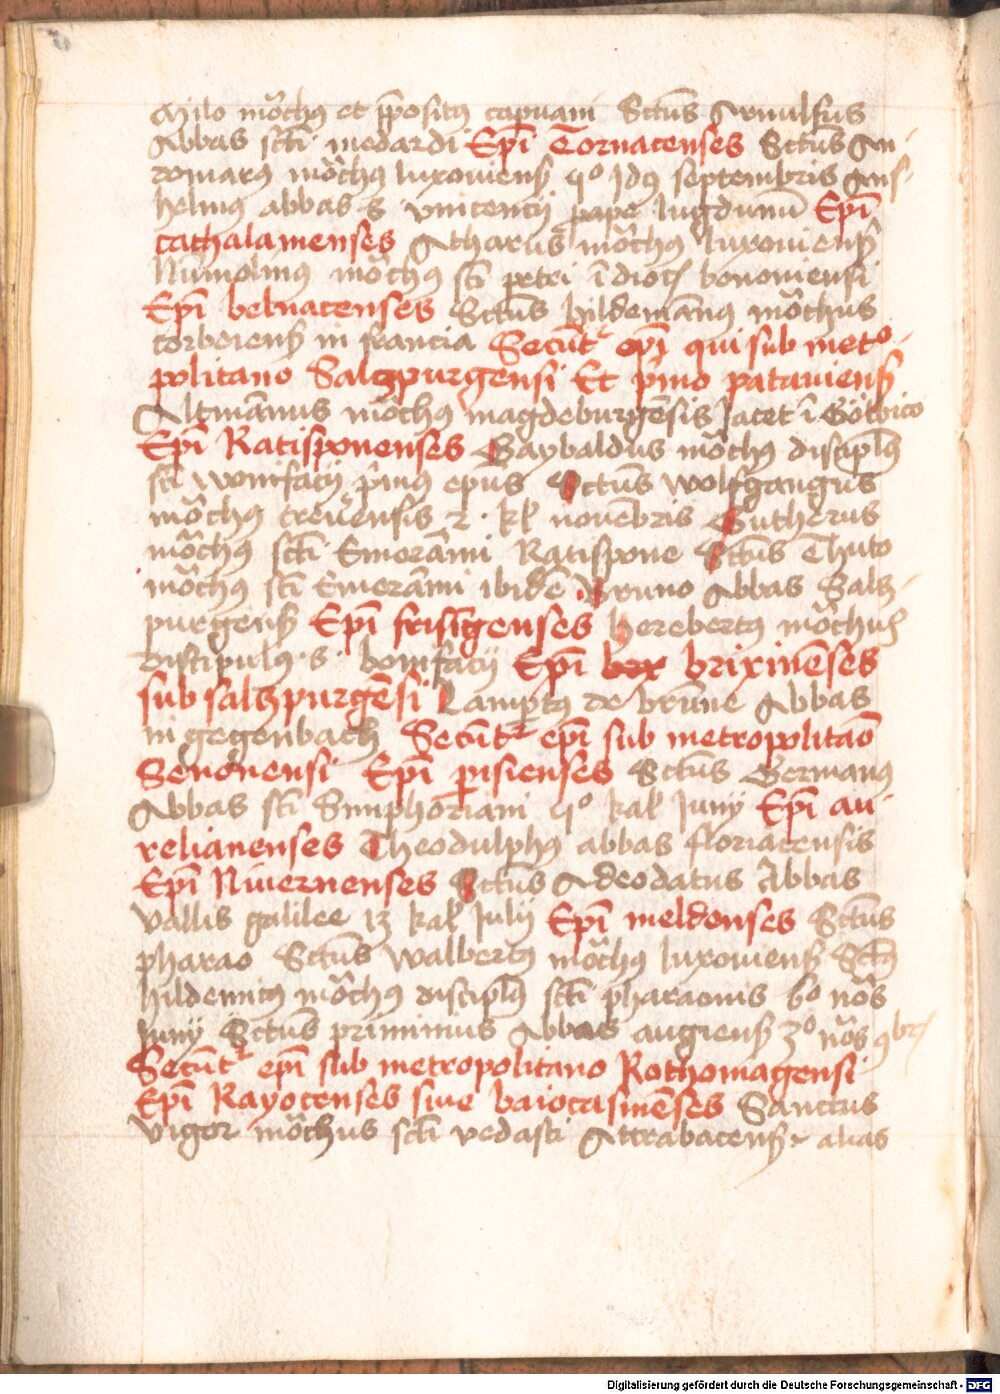 Milo mo̅chꝰ et p̅positꝰ capuani Sctu̅s Arnulfus
Abbas sc̅ti medardi Epi̅ Tornacenses Sctu̅s Au-
romarꝰ mo̅chꝰ luxouiens̅ 4º Jdꝰ septembris Ans-
helmꝰ abbas s vincencij pape lugdunu̅ Epi̅
cathalamenses Atharus mo̅chꝰ luxouiens̅
Numolinꝰ mo̅chꝰ sc̅ti petri i̅ dioc̅ bononiensi
Epi̅ beluacenses Sctu̅s hildema̅nꝰ mo̅chus
corbeiens̅ in francia Secu̅t^r epi̅ qui sub metº-
politano Salczpurgensi Et p̅mo patauiens̅
Altma̅nus mo̅chꝰ magdeburge̅sis Jacet i̅ Gotbico
Epi̅ Ratisponenses Gaybaldus mo̅chꝰ discip̅lꝰ
sc̅ti wonifacij p̅mꝰ ep̅us Sctu̅s wolfgangus
mo̅chꝰ treue̅nsis 2 · kl̅ noue̅bris Gutherus
mo̅chꝰ sc̅ti Emera̅mi Ratispone Sctu̅s Thuto
mo̅chꝰ sc̅ti Emera̅mi ibide̅ Bruno Abbas Salcz-
purgens̅ Epi̅ frisi̅genses herebertꝰ mo̅chus
discipulꝰ · s · bonifacij Epi̅ brixine̅ses
sub salczpurge̅si Lamp̅tꝰ de bru̅ne Abbas
in gegenbach Secu̅t^r epi̅ sub metropolita̅o
Senonensi Epi̅ p̅isienses Sctu̅s Germanꝰ
Abbas sc̅ti Simphoriani 4º kal̅ Junij Epi̅ au-
relianenses Theodulphꝰ abbas floriacensis
Epi̅ Niuernenses Sctu̅s Adeodatus Abbas
Vallis galilee 13 kal̅ Julij Epi̅ meldenses Sctu̅s
pharao Sctu̅s walbertꝰ mo̅chꝰ luxouiens̅ Sctꝰ
hildemicꝰ mo̅chꝰ discip̅lꝰ sc̅ti pharaonis 6º no̅s
Juny Sctu̅s priminius Abbas augiens̅ 3º no̅s 9br̅
Secu̅t^r epi̅ sub metropolitano Rothomagensi
Epi̅ Rayocenses siue baiocasine̅ses Sanctus
Vigor mo̅chus sc̅ti vedasti Attrabacens̅ · alias
Digitalisierung gefördert durch die Deutsche Forschungsgemeinschaft - DFG